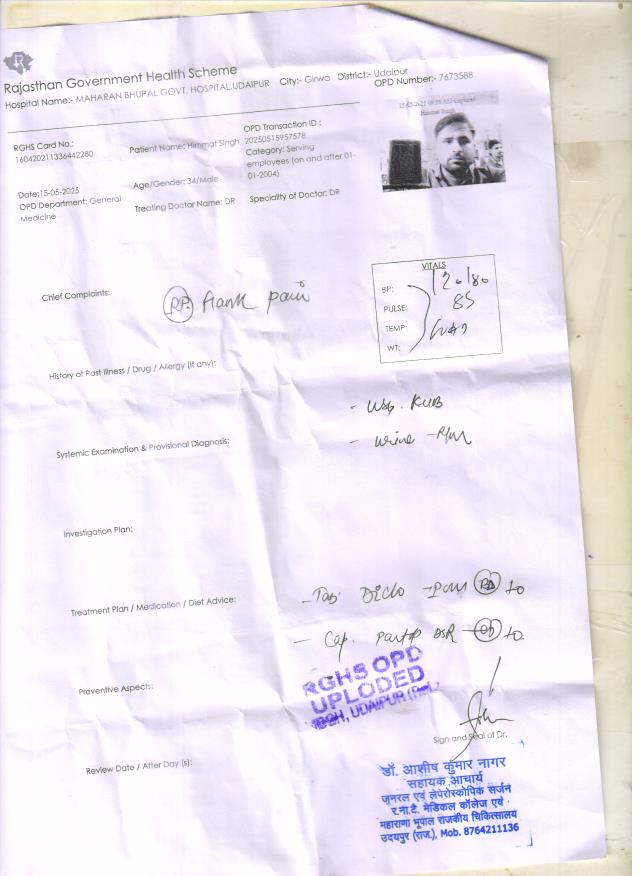 Rajasthan Government Health Scheme
Hospital Name:- MAHARAN BHUPAL GOVT. HOSPITAL,UDAIPUR City:- Girwa District:- Udaipur
OPD Number:- 7673588
RGHS Card No.:
160420211336442280
Patient Name: Himmat Singh
OPD Transaction ID :
20250515957578
Category: Serving
employees (on and after 01-
01-2004)
Date:15-05-2025
OPD Department: General
Medicine
Age/Gender: 34/Male
Treating Doctor Name: DR
Speciality of Doctor: DR
Himmat Singh
VITALS
BP: 120/80
PULSE: 85
TEMP:
WT:
Chief Complaints:
Flank pain
History of Past Illness / Drug / Allergy (if any):
- USG. KUB
- Urine - R/M
Systemic Examination & Provisional Diagnosis:
Investigation Plan:
Treatment Plan / Medication / Diet Advice:
- Tab. Diclo - PCM BD 10
- Cap. DSR OD 10
Preventive Aspects:
RGHS OPD
UPLODED
MBGH, UDAIPUR (Raj.)
Sign and Seal of Dr.
Review Date / After Day (s):
डॉ. आशीष कुमार नागर
सहायक आचार्य
जनरल एवं लेपेरोस्कोपिक सर्जन
र.ना.टै. मेडिकल कॉलेज एवं
महाराणा भूपाल राजकीय चिकित्सालय
उदयपुर (राज.), Mob. 8764211136